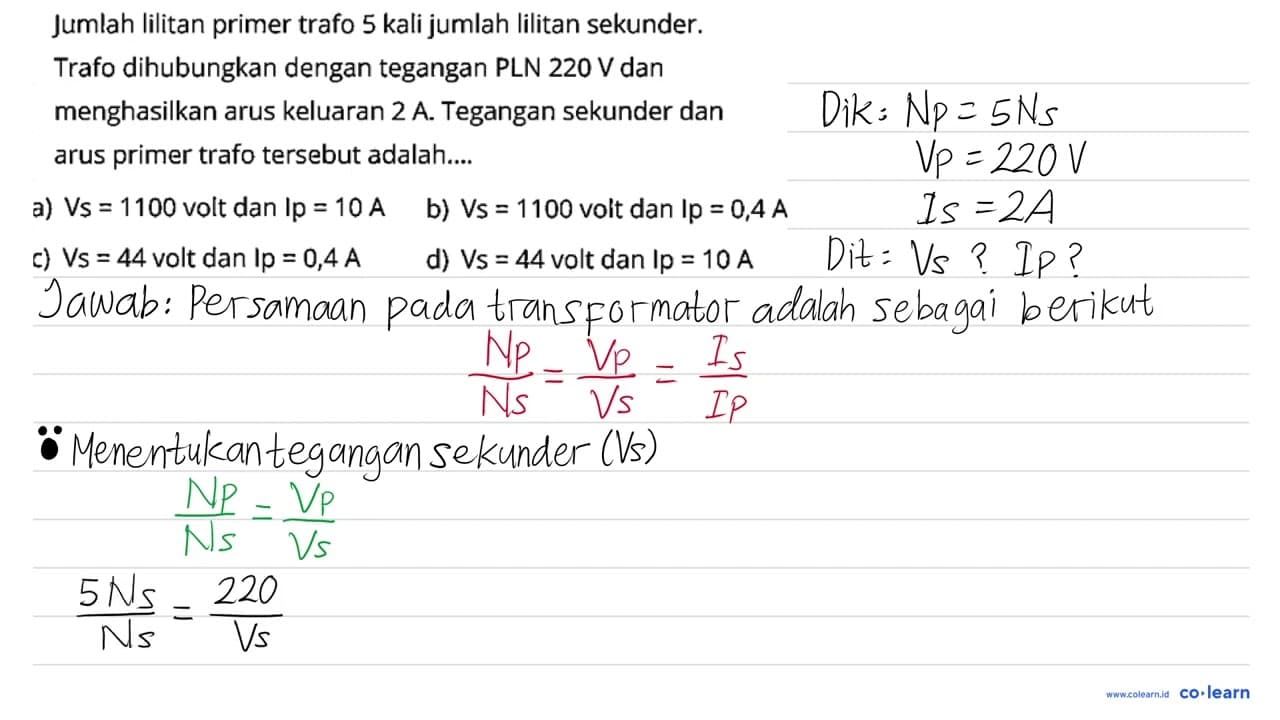 Jumlah lilitan primer trafo 5 kali jumlah lilitan sekunder.
Trafo dihubungkan dengan tegangan PLN 220 V dan
menghasilkan arus keluaran 2 A. Tegangan sekunder dan
arus primer trafo tersebut adalah....
a) Vs = 1100 volt dan Ip = 10 A b) Vs = 1100 volt dan Ip = 0,4 A
c) Vs = 44 volt dan Ip = 0,4 A d) Vs = 44 volt dan Ip = 10 A
Dik: Np = 5Ns
Vp = 220 V
Is = 2A
Dit: Vs ? Ip ?
Jawab: Persamaan pada transformator adalah sebagai berikut
Np/Ns = Vp/Vs = Is/Ip
Menentukan tegangan sekunder (Vs)
Np/Ns = Vp/Vs
5Ns/Ns = 220/Vs
www.colearn.id co·learn